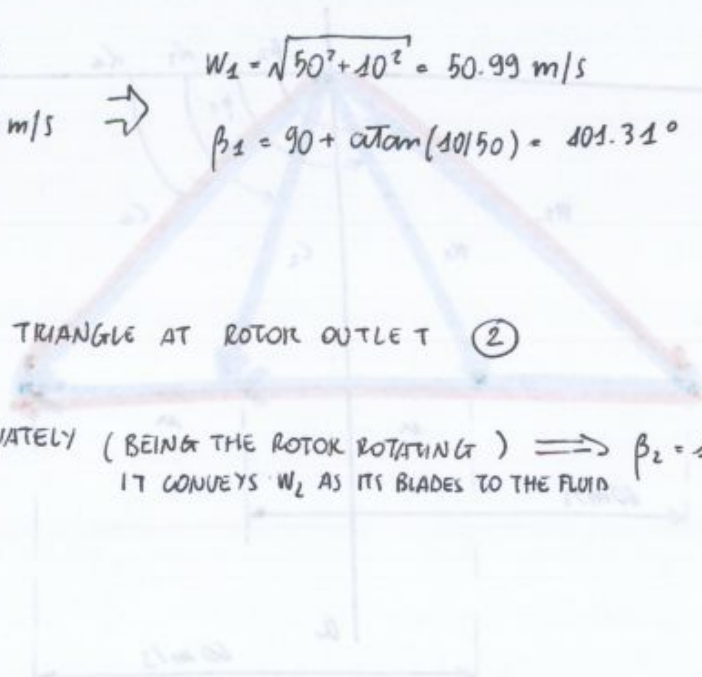 W1 = √50²+10² = 50.99 m/s
m/s ⇒
β1 = 90 + atan(10/50) = 101.31°
TRIANGLE AT ROTOR OUTLET ②
ATELY (BEING THE ROTOR ROTATING) ⟹ β2 =
IT CONVEYS W2 AS ITS BLADES TO THE FLUID